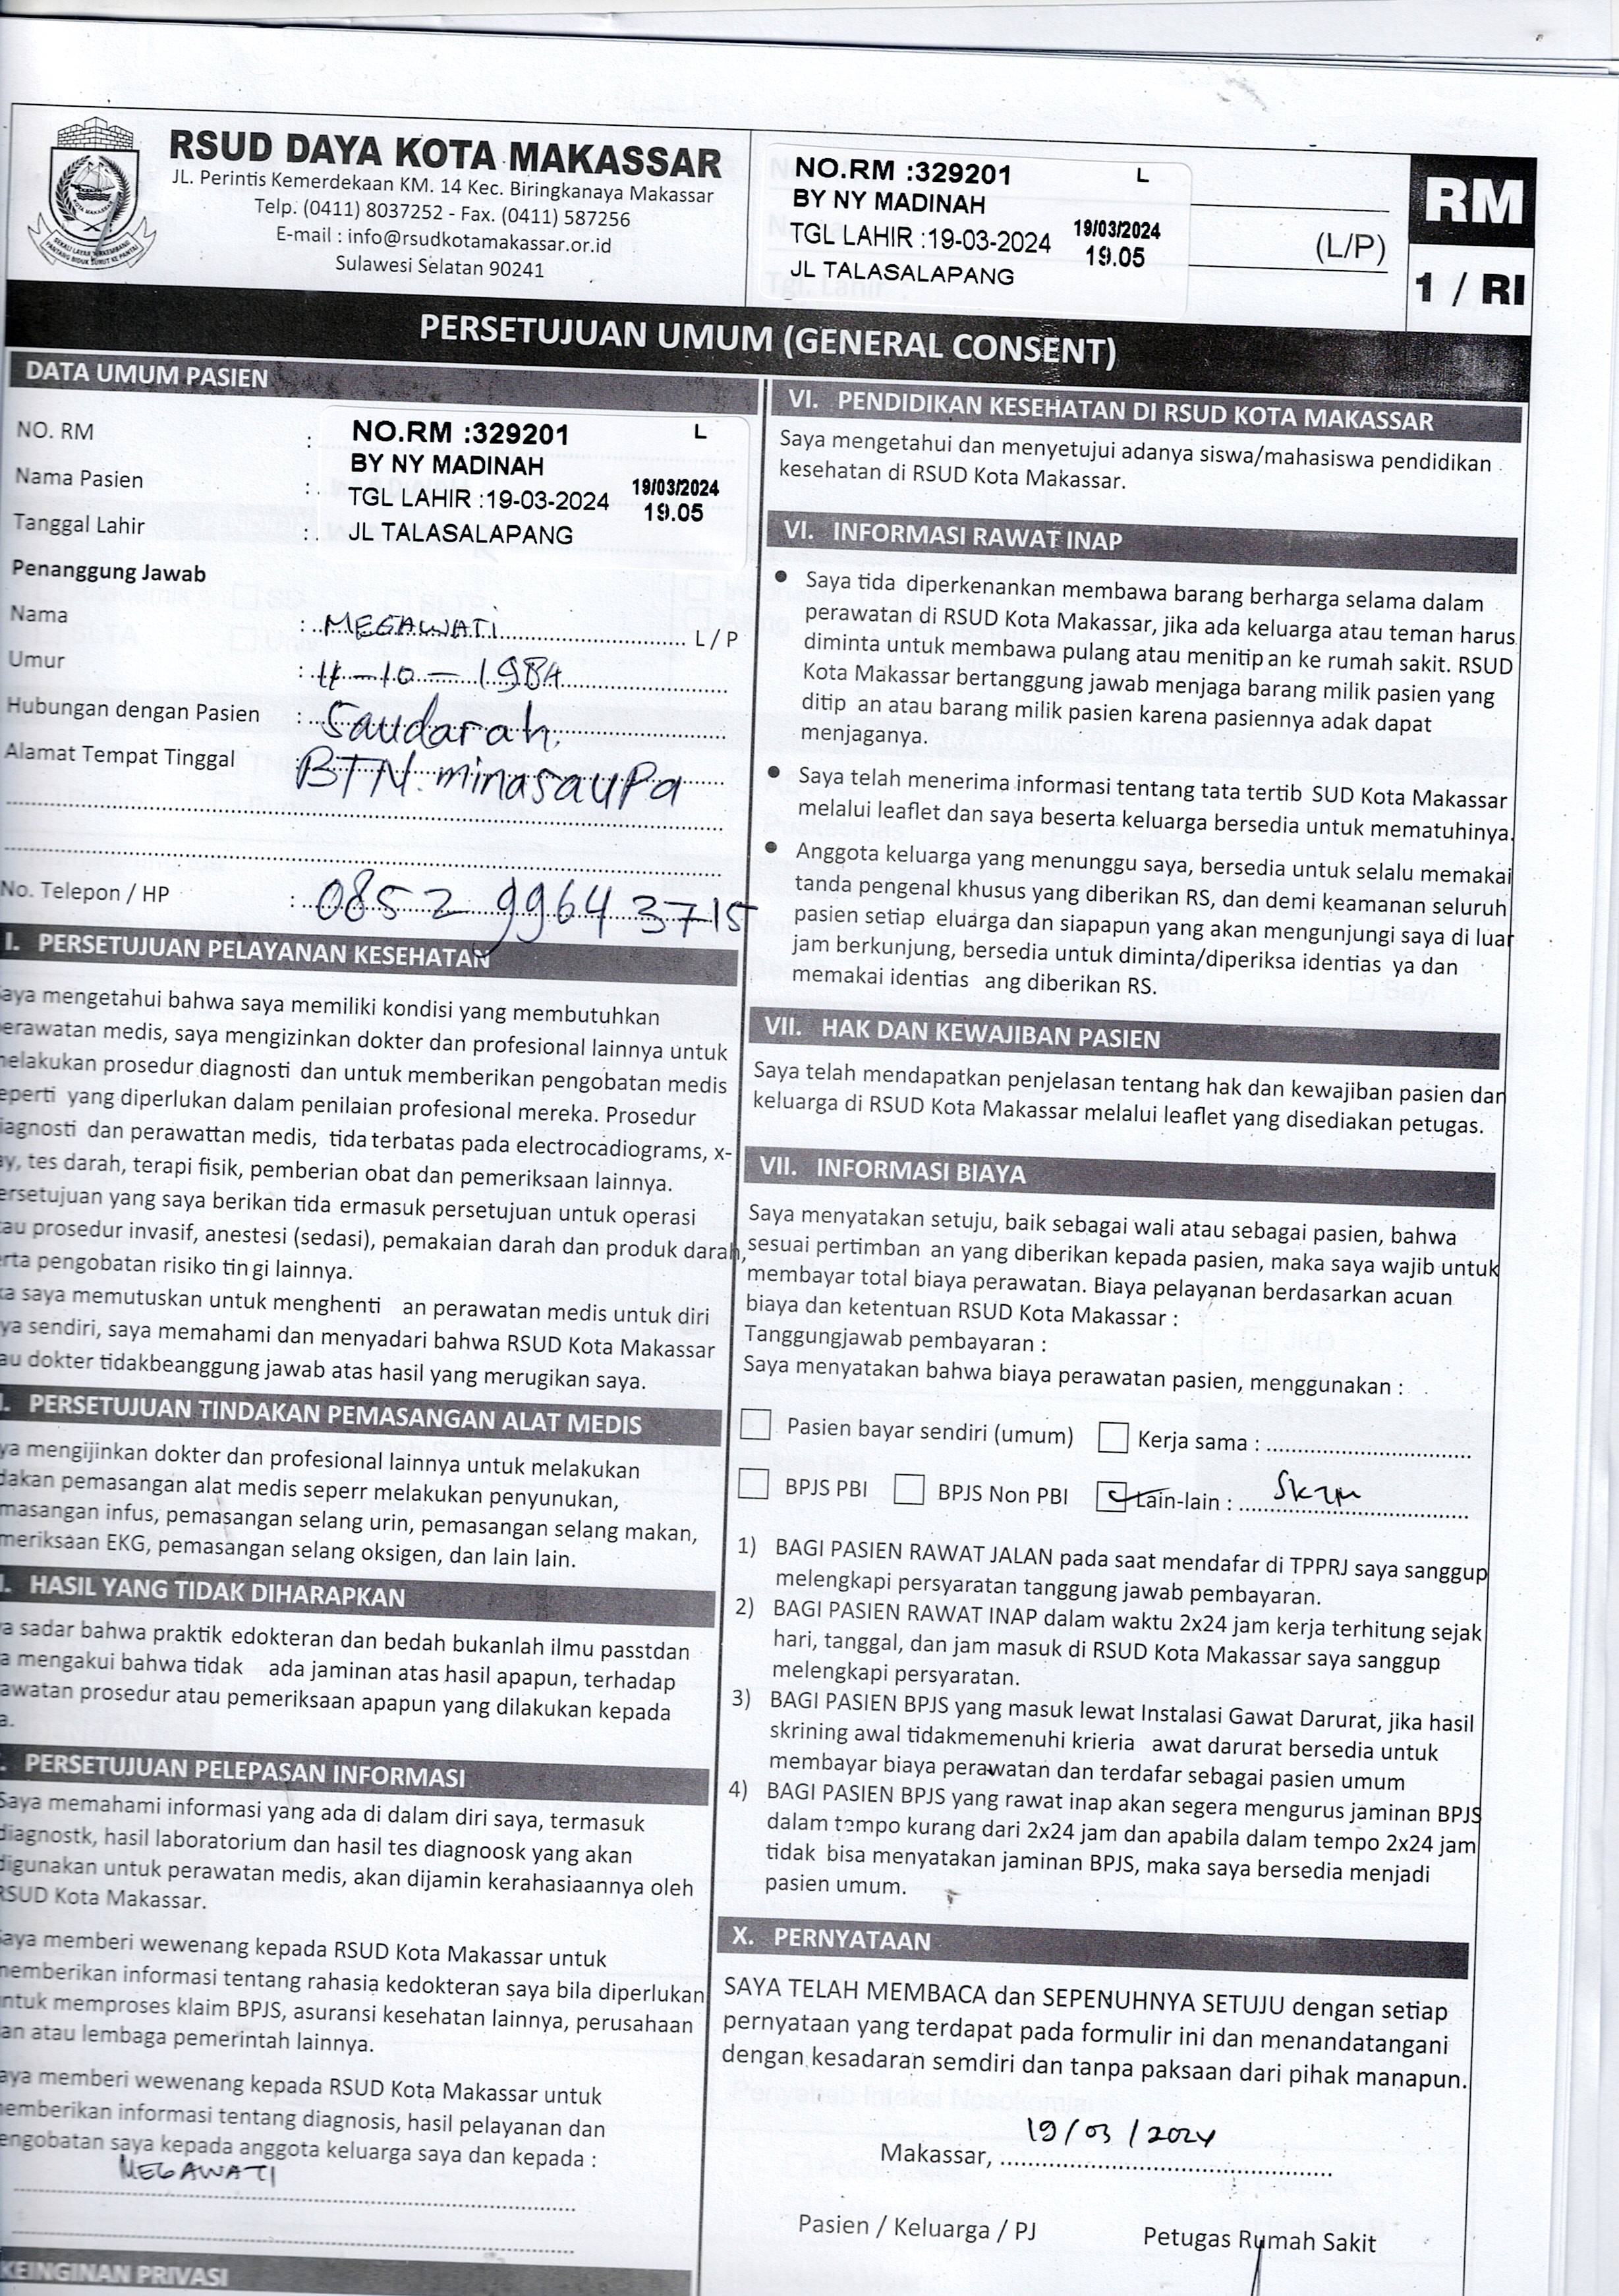 RSUD DAYA KOTA MAKASSAR
JL. Perintis Kemerdekaan KM. 14 Kec. Biringkanaya Makassar
Telp. (0411) 8037252 - Fax. (0411) 587256
E-mail : info@rsudkotamakassar.or.id
Sulawesi Selatan 90241
NO.RM :329201 L
BY NY MADINAH
TGL LAHIR :19-03-2024 19/03/2024 19.05
JL TALASALAPANG
(L/P)
RM
1 / RI
PERSETUJUAN UMUM (GENERAL CONSENT)
DATA UMUM PASIEN
NO. RM :
Nama Pasien :
Tanggal Lahir :
NO.RM :329201 L
BY NY MADINAH
TGL LAHIR :19-03-2024 19/03/2024 19.05
JL TALASALAPANG
Penanggung Jawab
Nama : MEGAWATI L / P
Umur : 11-10-1984
Hubungan dengan Pasien : Saudarah.
Alamat Tempat Tinggal : BTN. minasaupa
No. Telepon / HP : 0852 9964 3715
I. PERSETUJUAN PELAYANAN KESEHATAN
aya mengetahui bahwa saya memiliki kondisi yang membutuhkan
erawatan medis, saya mengizinkan dokter dan profesional lainnya untuk
nelakukan prosedur diagnosti dan untuk memberikan pengobatan medis
eperti yang diperlukan dalam penilaian profesional mereka. Prosedur
iagnosti dan perawattan medis, tida terbatas pada electrocadiograms, x-
y, tes darah, terapi fisik, pemberian obat dan pemeriksaan lainnya.
ersetujuan yang saya berikan tida ermasuk persetujuan untuk operasi
au prosedur invasif, anestesi (sedasi), pemakaian darah dan produk darah,
rta pengobatan risiko tin gi lainnya.
ka saya memutuskan untuk menghenti an perawatan medis untuk diri
ya sendiri, saya memahami dan menyadari bahwa RSUD Kota Makassar
au dokter tidakbeanggung jawab atas hasil yang merugikan saya.
I. PERSETUJUAN TINDAKAN PEMASANGAN ALAT MEDIS
ya mengijinkan dokter dan profesional lainnya untuk melakukan
dakan pemasangan alat medis seperr melakukan penyunukan,
masangan infus, pemasangan selang urin, pemasangan selang makan,
meriksaan EKG, pemasangan selang oksigen, dan lain lain.
I. HASIL YANG TIDAK DIHARAPKAN
a sadar bahwa praktik edokteran dan bedah bukanlah ilmu passtdan
a mengakui bahwa tidak ada jaminan atas hasil apapun, terhadap
awatan prosedur atau pemeriksaan apapun yang dilakukan kepada
a.
. PERSETUJUAN PELEPASAN INFORMASI
Saya memahami informasi yang ada di dalam diri saya, termasuk
diagnostk, hasil laboratorium dan hasil tes diagnoosk yang akan
digunakan untuk perawatan medis, akan dijamin kerahasiaannya oleh
RSUD Kota Makassar.
Saya memberi wewenang kepada RSUD Kota Makassar untuk
nemberikan informasi tentang rahasia kedokteran saya bila diperlukan
ntuk memproses klaim BPJS, asuransi kesehatan lainnya, perusahaan
an atau lembaga pemerintah lainnya.
aya memberi wewenang kepada RSUD Kota Makassar untuk
emberikan informasi tentang diagnosis, hasil pelayanan dan
engobatan saya kepada anggota keluarga saya dan kepada :
MEGAWATI
KEINGINAN PRIVASI
VI. PENDIDIKAN KESEHATAN DI RSUD KOTA MAKASSAR
Saya mengetahui dan menyetujui adanya siswa/mahasiswa pendidikan
kesehatan di RSUD Kota Makassar.
VI. INFORMASI RAWAT INAP
• Saya tida diperkenankan membawa barang berharga selama dalam
perawatan di RSUD Kota Makassar, jika ada keluarga atau teman harus
diminta untuk membawa pulang atau menitip an ke rumah sakit. RSUD
Kota Makassar bertanggung jawab menjaga barang milik pasien yang
ditip an atau barang milik pasien karena pasiennya adak dapat
menjaganya.
• Saya telah menerima informasi tentang tata tertib SUD Kota Makassar
melalui leaflet dan saya beserta keluarga bersedia untuk mematuhinya.
• Anggota keluarga yang menunggu saya, bersedia untuk selalu memakai
tanda pengenal khusus yang diberikan RS, dan demi keamanan seluruh
pasien setiap eluarga dan siapapun yang akan mengunjungi saya di luar
jam berkunjung, bersedia untuk diminta/diperiksa identias ya dan
memakai identias ang diberikan RS.
VII. HAK DAN KEWAJIBAN PASIEN
Saya telah mendapatkan penjelasan tentang hak dan kewajiban pasien dan
keluarga di RSUD Kota Makassar melalui leaflet yang disediakan petugas.
VII. INFORMASI BIAYA
Saya menyatakan setuju, baik sebagai wali atau sebagai pasien, bahwa
sesuai pertimban an yang diberikan kepada pasien, maka saya wajib untuk
membayar total biaya perawatan. Biaya pelayanan berdasarkan acuan
biaya dan ketentuan RSUD Kota Makassar :
Tanggungjawab pembayaran :
Saya menyatakan bahwa biaya perawatan pasien, menggunakan :
Pasien bayar sendiri (umum) Kerja sama :
BPJS PBI BPJS Non PBI Lain-lain :
1) BAGI PASIEN RAWAT JALAN pada saat mendafar di TPPRJ saya sanggup
melengkapi persyaratan tanggung jawab pembayaran.
2) BAGI PASIEN RAWAT INAP dalam waktu 2x24 jam kerja terhitung sejak
hari, tanggal, dan jam masuk di RSUD Kota Makassar saya sanggup
melengkapi persyaratan.
3) BAGI PASIEN BPJS yang masuk lewat Instalasi Gawat Darurat, jika hasil
skrining awal tidakmemenuhi krieria awat darurat bersedia untuk
membayar biaya perawatan dan terdafar sebagai pasien umum
4) BAGI PASIEN BPJS yang rawat inap akan segera mengurus jaminan BPJS
dalam tempo kurang dari 2x24 jam dan apabila dalam tempo 2x24 jam
tidak bisa menyatakan jaminan BPJS, maka saya bersedia menjadi
pasien umum.
X. PERNYATAAN
SAYA TELAH MEMBACA dan SEPENUHNYA SETUJU dengan setiap
pernyataan yang terdapat pada formulir ini dan menandatangani
dengan kesadaran semdiri dan tanpa paksaan dari pihak manapun.
Makassar, 19/03/2024
Pasien / Keluarga / PJ Petugas Rumah Sakit